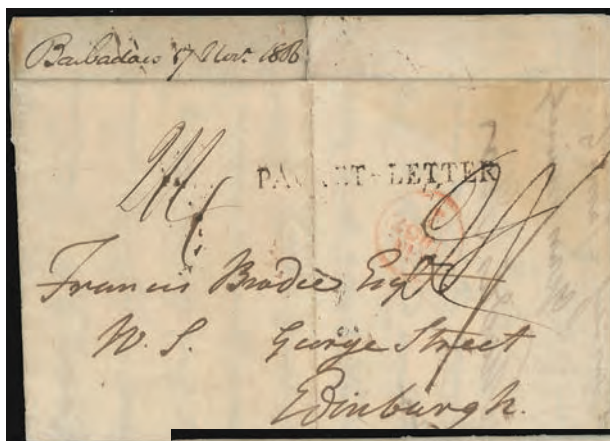 Barbadoes 17 Novr. 1806
PACKET-LETTER
Francis Brodie Esqr
W. S. George Street
Edinburgh.